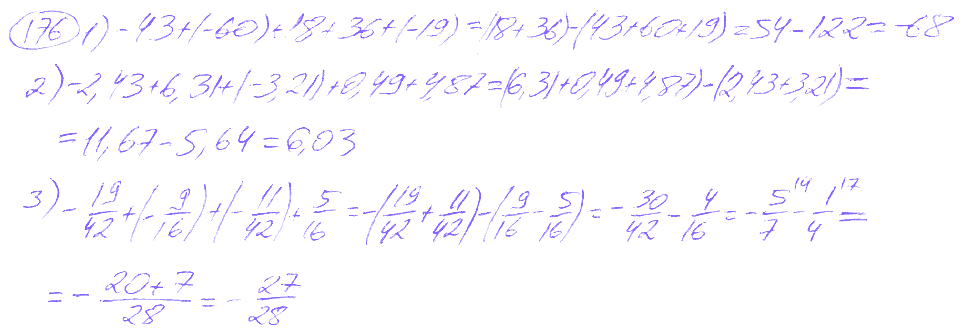 176 1) -43+(-60)+18+36+(-19)=(18+36)-(43+60+19)=54-122=-68
2) -2,43+6,31+(-3,21)+0,49+4,87=(6,31+0,49+4,87)-(2,43+3,21)=
=11,67-5,64=6,03
3) -19/42+(-9/16)+(-11/42)+5/16=-(19/42+11/42)-(9/16-5/16)=-30/42-4/16=-5/7^14-1/4^17=
=-(20+7)/28=-27/28